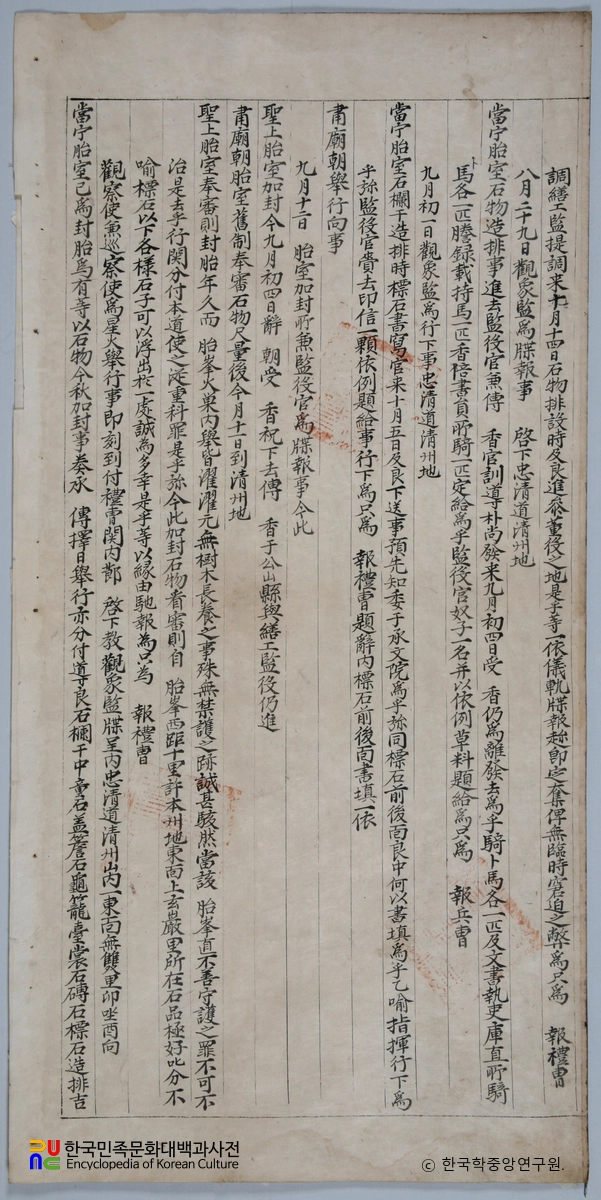 調繕工監提調來十月十四日石物排設時及良進參董役之地是乎等一依儀軌牒報趂卽定奪俾無臨時窘迫之弊爲只爲 報禮曹
八月二十九日觀象監爲牒報事 啓下忠淸道淸州地
當宁胎室石物造排事進去監役官兼傳 香官訓導朴尙發來九月初四日受 香仍爲離發去爲乎騎卜馬各一匹及文書執吏庫直所騎
馬各一匹謄錄載持馬一匹香陪書員所騎一匹定給爲乎監役官奴子一名幷以依例草料題給爲只爲 報兵曹
九月初一日觀象監爲行下事忠淸道淸州地
當宁胎室石欄干造排時標石書寫官來十月五日及良下送事預先知委于承文院爲乎旀同標石前後面良中何以書塡爲乎乙喩指揮行下爲
乎旀監役官賫去印信一顆依例題給事行下爲只爲 報禮曹題辭內標石前後面書塡一依
肅廟朝擧行向事
九月十二日 胎室加封所兼監役官爲牒報事今此
聖上胎室加封今九月初四日辭 朝受 香祝下去傳 香于公山縣與繕工監役仍進
肅廟朝胎室舊制奉審石物尺量後今月十一日到淸州地
聖上胎室奉審則封胎年久而 胎峯火巢內擧皆濯濯元無樹木長養之事殊無禁護之跡誠甚駭然當該 胎峯直不善守護之罪不可不
治是去乎行關分付本道使之從重科罪是乎旀今此加封石物看審則自 胎峯西距十里許本州地東面上玄巖里所在石品極好叱分不
喩標石以下各樣石子可以浮出於一處誠爲多幸是乎等以緣由馳報爲只爲 報禮曹
觀察使兼巡察使爲星火擧行事卽刻到付禮曹關內節 啓下敎觀象監牒呈內忠淸道淸州山內一東面無雙里卯坐酉向
當宁胎室已爲封胎爲有等以石物今秋加封事奏承 傳擇日擧行亦分付道導良石欄干中童石盖簷石龜籠臺裳石磚石標石造排吉
한국민족문화대백과사전
Encyclopedia of Korean Culture
© 한국학중앙연구원.